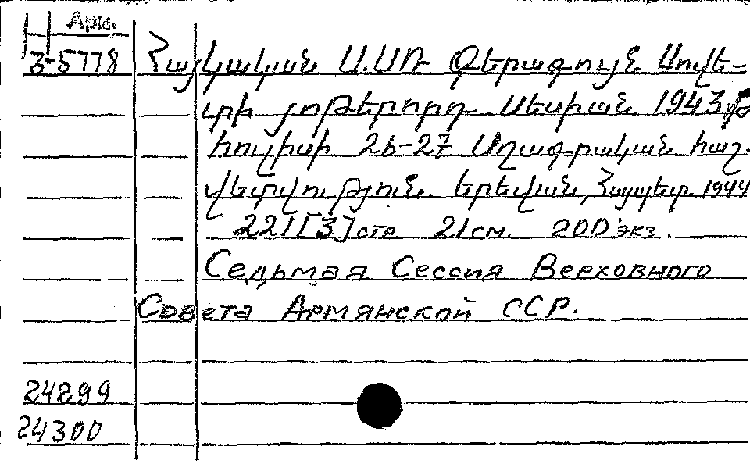 Арм.
3-5778 Հայկական ՍՍՌ Գերագույն Սովե-
տի յոթերորդ սեսիան 1943 թ
հուլիսի 26-27 Սղագրական հաշ-
վետվություն. Երեվան, Հայպետ. 1944
221[3] стр 21 см. 200 экз.
Седьмая Сессия Верховного
Совета Армянской ССР.
24299
24300